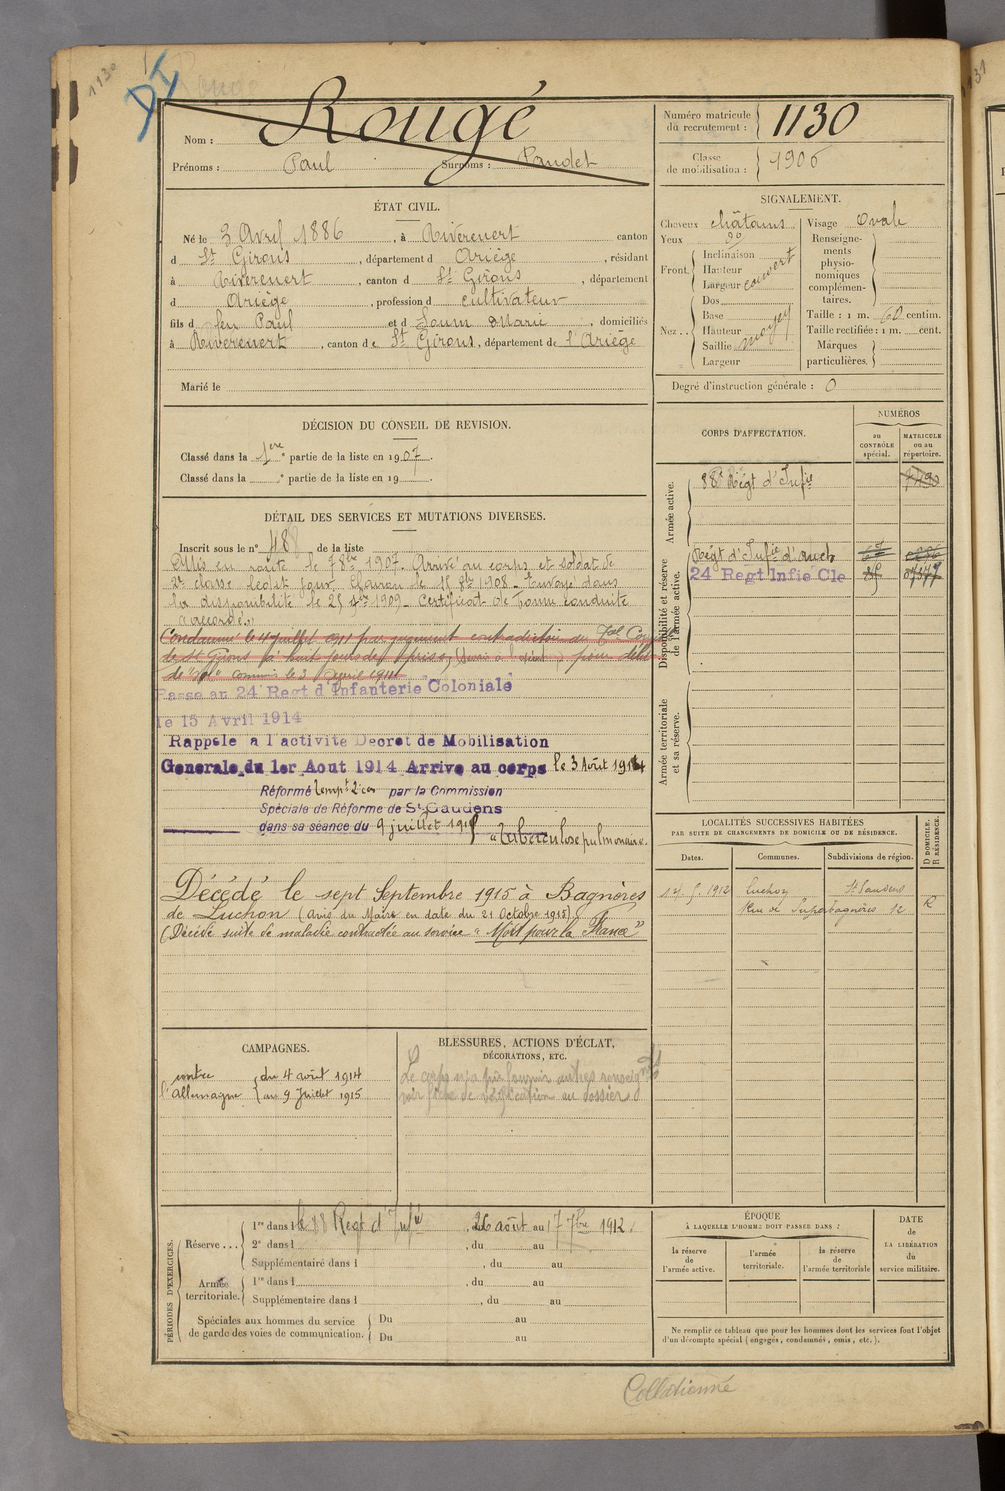 1130
DI
Rougé
Nom : Rougé
Prénoms : Paul Surnoms :
Numéro matricule du recrutement : 1130
Classe de mobilisation : 1906
ÉTAT CIVIL.
Né le 3 Avril 1886, à Rivèrenert canton
d St Girons, département d Ariège, résidant
à Rivèrenert, canton d St Girons, département
d Ariège, profession d cultivateur
fils d feu Paul et d Soum Marie, domiciliés
à Rivèrenert, canton de St Girons, département de l'Ariège
Marié le
SIGNALEMENT.
Cheveux châtains
Yeux do
Front. Inclinaison Hauteur Largeur couvert
Nez .. Dos Base Hauteur Saillie Largeur moyen
Visage Ovale
Renseignements physionomiques complémentaires.
Taille : 1 m. 60 centim.
Taille rectifiée : 1 m. cent.
Marques particulières.
Degré d'instruction générale : 0
DÉCISION DU CONSEIL DE REVISION.
Classé dans la 1ere partie de la liste en 1907.
Classé dans la e partie de la liste en 19 .
CORPS D'AFFECTATION.
NUMÉROS
au CONTRÔLE spécial.
MATRICULE ou au répertoire.
Armée active.
88e Régt d'Infie
Disponibilité et réserve de l'armée active.
Régt d'Infie d'Auch
24 Regt Infie Cle
Armée territoriale et sa réserve.
DÉTAIL DES SERVICES ET MUTATIONS DIVERSES.
Inscrit sous le n° 488 de la liste
Mis en route le 7 8bre 1907. Arrivé au corps et soldat de
2e classe ledit jour. 1908. Envoyé dans
la disponibilité le 25 7bre 1909. Certificat de bonne conduite
accordé.
Condamné le 4 juillet 1911 par jugement contradictoire du Tal Corr
de St Girons à huit jours de prison pour délit
de commis le 3 Avril 1911
Passe au 24 Regt d'Infanterie Coloniale
le 15 Avril 1914
Rappele a l'activite Decret de Mobilisation
Generale du 1er Aout 1914 Arrive au corps le 3 Août 1914
Réformé tempt par la Commission
Spéciale de Réforme de St Gaudens
dans sa séance du 9 juillet 1915
"Tuberculose pulmonaire.
Décédé le sept Septembre 1915 à Bagnères
de Luchon (Avis du Maire en date du 21 Octobre 1915)
(Décédé suite de maladie contractée au service "Mort pour la France"
LOCALITÉS SUCCESSIVES HABITÉES
PAR SUITE DE CHANGEMENTS DE DOMICILE OU DE RÉSIDENCE.
Dates. Communes. Subdivisions de région. D DOMICILE. R RÉSIDENCE.
1912 Luchon St Gaudens
Rue de Superbagnères 12 R
CAMPAGNES.
contre l'Allemagne { du 4 août 1914
au 9 Juillet 1915
BLESSURES, ACTIONS D'ÉCLAT,
DÉCORATIONS, ETC.
Le corps n'a pu fournir autres renseignts
voir fiche de vérification au dossier
PÉRIODES D'EXERCICES.
Réserve ... 1re dans l e 88 Regt d'Infie, du 26 août au 17 7bre 1912.
2e dans l , du au
Supplémentaire dans l , du au
Armée territoriale. 1re dans l , du au
Supplémentaire dans l , du au
Spéciales aux hommes du service de garde des voies de communication. Du au
Du au
ÉPOQUE
À LAQUELLE L'HOMME DOIT PASSER DANS :
la réserve de l'armée active.
l'armée territoriale.
la réserve de l'armée territoriale
DATE de LA LIBÉRATION du service militaire.
Ne remplir ce tableau que pour les hommes dont les services font l'objet
d'un décompte spécial (engagés, condamnés, omis, etc.).
Collationné